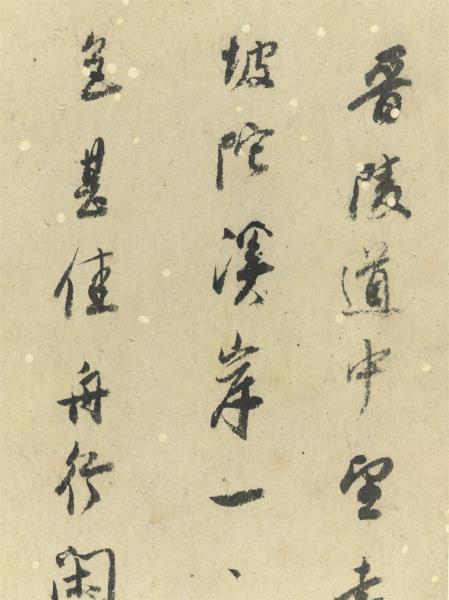 晋陵道中望
坡陀溪岸一
色甚佳舟行閑